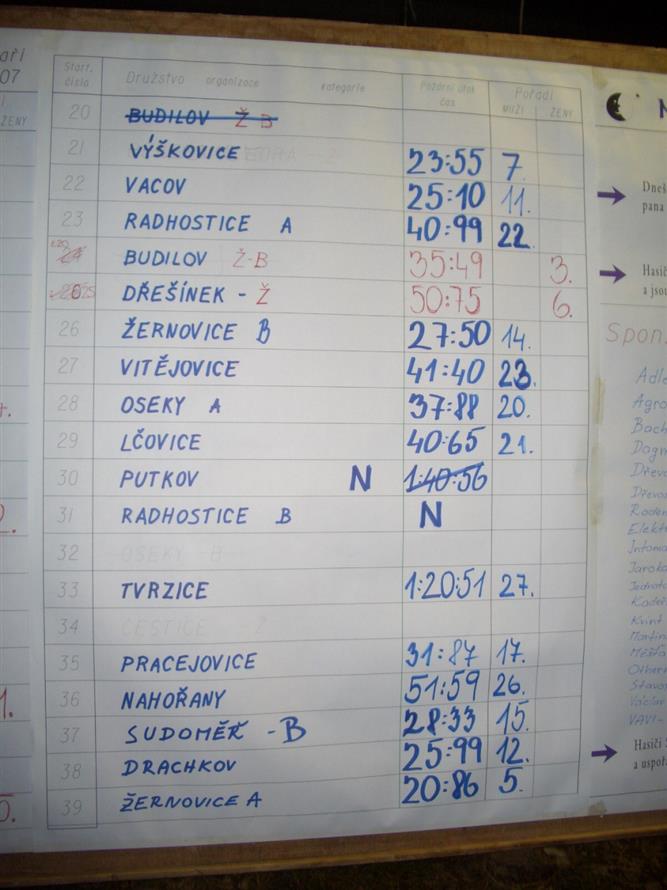 Start. číslo Družstvo organizace kategorie Požární útok čas Pořadí MUŽI ŽENY
20 BUDILOV Ž B
21 VÝŠKOVICE 23:55 7.
22 VACOV 25:10 11.
23 RADHOSTICE A 40:99 22.
BUDILOV Ž-B 35:49 3.
DŘEŠÍNEK - Ž 50:75 6.
26 ŽERNOVICE B 27:50 14.
27 VITĚJOVICE 41:40 23.
28 OSEKY A 37:88 20.
29 LČOVICE 40:65 21.
30 PUTKOV N 1:40:56
31 RADHOSTICE B N
32 OSEKY B
33 TVRZICE 1:20:51 27.
34 ČESTICE Ž
35 PRACEJOVICE 31:87 17.
36 NAHOŘANY 51:59 26.
37 SUDOMĚŘ - B 28:33 15.
38 DRACHKOV 25:99 12.
39 ŽERNOVICE A 20:86 5.
07
ŽENY
Dneš
pana
Hasič
a jsou
Spon.
Adle
Agro
Bach
Dagm
Dřevo
Dřevod
Roden
Elektr
Jaroko
Jednota
Kadeř
Kvint
Martin
Měšťa
Other
Stavo
Václav
VAVI-
Hasiči
a uspoř